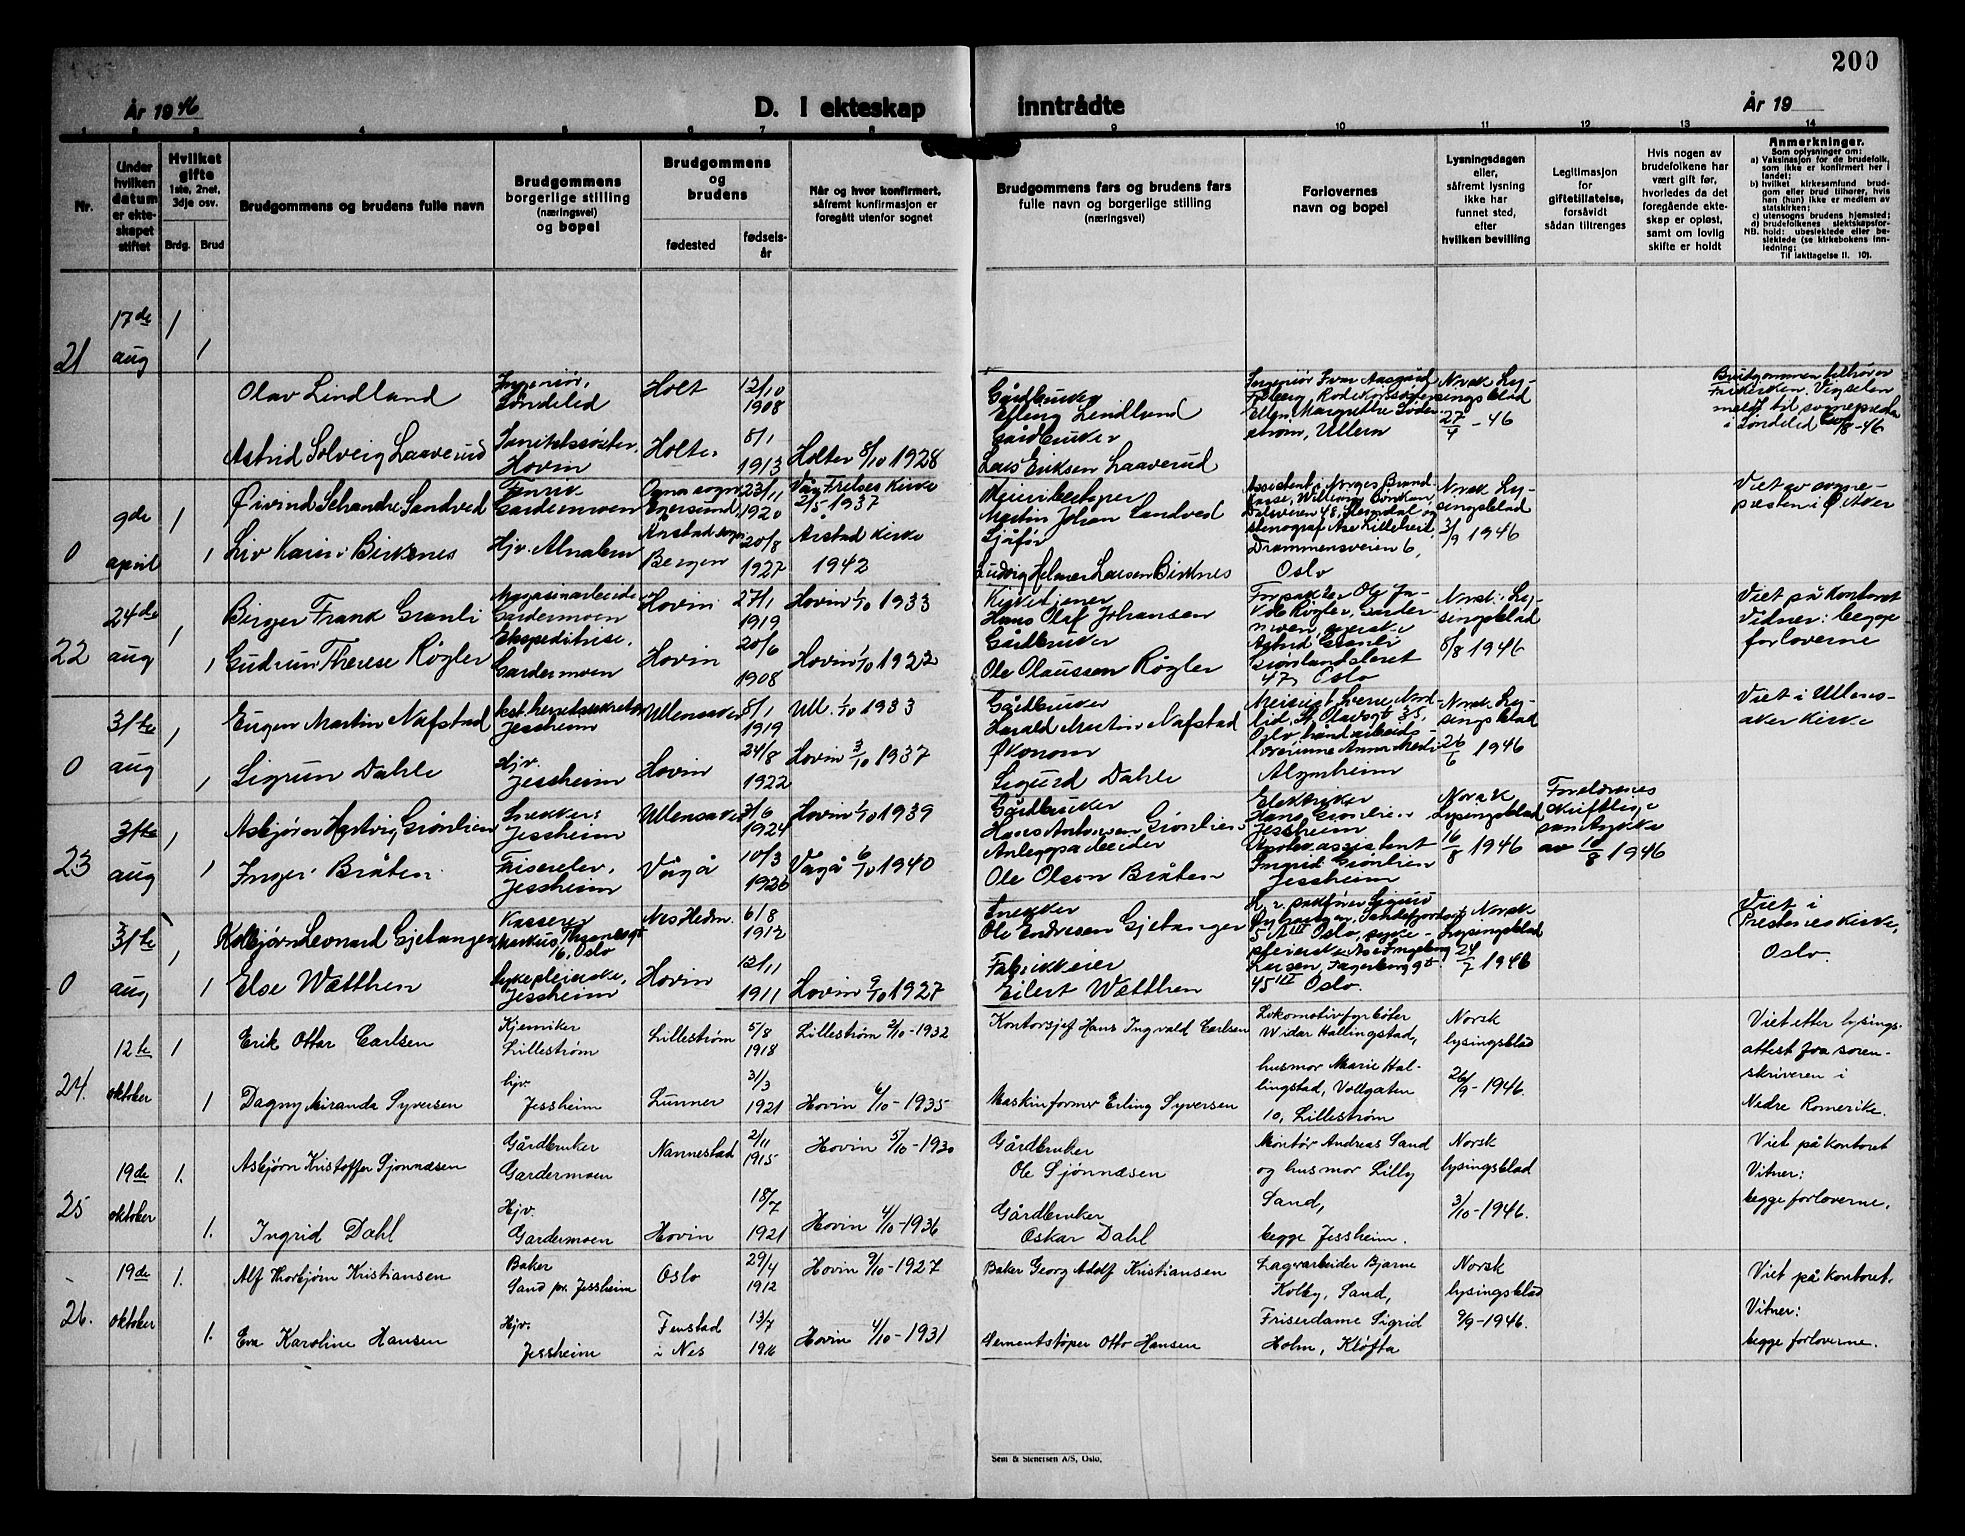 200
År 1946
D. I ekteskap inntrådte
År 19
1 2 3 4 5 6 7 8 9 10 11 12 13 14
Nr.
Under hvilken datum er ekteskapet stiftet
Hvilket gifte
1ste, 2net, 3dje osv.
Brdg. Brud
Brudgommens og brudens fulle navn
Brudgommens borgerlige stilling (næringsvei) og bopel
Brudgommens og brudens
fødested
fødselsår
Når og hvor konfirmert, såfremt konfirmasjon er foregått utenfor sognet
Brudgommens fars og brudens fars fulle navn og borgerlige stilling (næringsvei)
Forlovernes navn og bopel
Lysningsdagen eller, såfremt lysning ikke har funnet sted, efter hvilken bevilling
Legitimasjon for giftetillatelse, forsåvidt sådan tiltrenges
Hvis nogen av brudefolkene har vært gift før, hvorledes da det foregående ekteskap er opløst, samt om lovlig skifte er holdt
Anmerkninger.
Som oplysninger om:
a) Vaksinasjon for de brudefolk, som ikke er konfirmert her i landet;
b) hvilket kirkesamfund brudgom eller brud tilhører, hvis han (hun) ikke er medlem av statskirken;
c) utensogns brudens hjemsted;
d) brudefolkenes slektskapsforhold: ubeslektede eller beslektede (se kirkebokens innledning;
Til iakttagelse II. 10).
21 17de aug 1 1
Olav Lindland Ingeniør, Søndeled Holt 12/10 1908
Gårdbruker Lindland
Norsk Lysingsblad 27/7 - 46
Brudgommen tilhører Frikirken. Vigselen meldt til sognepresten i Søndeled
Astrid Solveig Laaverud Sanitetssøster, Hovin Holter 8/1 1913 Holter 8/10 1928
Gårdbruker Lars Eriksen Laaverud
0 9de april 1 1
Øivind Schandre Sandved Fenrik Gardermoen Ogna sogn Egersund 23/11 1920 Vår Frelses Kirke 2/5 1937
Meieribestyrer Martin Johan Sandved
Drammensveien 6, Oslo
Norsk Lysingsblad 3/9 1946
Viet av sognepresten i Ø. Aker
Liv Karin Birknes Hjv. Alnabru Årstad sogn Bergen 20/8 1927 Årstad Kirke 1942
Sjåfør Ludvig Helmer Larsen Birknes
22 24de aug 1 1
Birger Frank Granli Magasinarbeider Gardermoen Hovin 27/1 1919 Hovin 1/10 1933
Kirketjener Hans Olaf Johansen
Astrid Granli Grønlandsleret 47, Oslo
Norsk Lysingsblad 5/8 1946
Viet på Kontoret Vidner: begge forloverne
Gudrun Therese Røgler Ekspeditrise, Gardermoen Hovin 20/6 1908 Hovin 1/10 1922
Gårdbruker Ole Olaussen Røgler
0 31te aug 1 1
Eugen Martin Nafstad Jessheim Ullensaker 8/1 1919 Ull. 1/10 1933
Gårdbruker Harald Martin Nafstad
Norsk Lysingsblad 26/6 1946
Viet i Ullensaker Kirke
Sigrun Dahle Hjv. Jessheim Hovin 24/8 1922 Hovin 3/10 1937
Økonom Sigurd Dahle
Algarheim
23 31te aug 1 1
Asbjørn Hartvig Grønlien Snekker, Jessheim Ullensaker 3/6 1924 Hovin 1/10 1939
Gårdbruker Hans Antonsen Grønlien
Elektriker Hans Grønlien Jessheim Apotekassistent Ingrid Grønlien Jessheim
Norsk Lysingsblad 16/8 1946
Foreldrenes skriftlige samtykke av 10/8 1946
Inger Bråten Friserelev, Jessheim Vågå 10/3 1926 Vågå 6/10 1940
Anleggsarbeider Ole Olsen Bråten
0 31te aug 1 1
Kolbjørn Leonard Gjetanger Kasserer Oslo Nes Hedm. 6/8 1912
Snekker Ole Endresen Gjetanger
45 III Oslo.
Norsk Lysingsblad 24/7 1946
Viet i Prestenes Kirke, Oslo.
Else Wætthen Sykepleierske, Jessheim Hovin 12/11 1911 Hovin 2/10 1927
Fabrikkeier Eilert Wætthen
24. 12te oktober 1 1
Erik Ottar Carlsen Kjemiker Lillestrøm Lillestrøm 5/8 1918 Lillestrøm 2/10-1932
Kontorsjef Hans Ingvald Carlsen
Lokomotivfyrbøter Widar Hallingstad, husmor Marie Hallingstad, Vollgaten 10, Lillestrøm
Norsk lysingsblad 26/9-1946.
Viet etter lysingsattest fra sorenskriveren i Nedre Romerike.
Dagny Miranda Syversen hjv. Jessheim Lunner 3/3 1921 Hovin 6/10-1935
Maskinformer Erling Syversen
25 19de oktober 1. 1.
Asbjørn Kristoffer Sjonnæsen Gårdbruker Gardermoen Nannestad 2/11 1915 Hovin 5/10-1930
Gårdbruker Ole Sjønnæsen
Montør Andreas Sand og husmor Lilly Sand, begge Jessheim.
Norsk lysingsblad 3/10-1946.
Viet på kontoret Vitner: begge forloverne.
Ingrid Dahl Hjv. Gardermoen Hovin 18/7 1921 Hovin 4/10-1936
Gårdbruker Oskar Dahl
26. 19de oktober 1. 1.
Alf Thorbjørn Kristiansen Baker Sand pr. Jessheim Oslo 29/4 1912 Hovin 9/10-1927
Baker Georg Adolf Kristiansen
Lagerarbeider Bjarne Kolby, Sand, Friserdame Sigrid Holm, Kløfta
Norsk lysingsblad 9/9-1946.
Viet på kontoret. Vitner: begge forloverne.
Eva Karoline Hansen Hjv. Jessheim Fenstad i Nes 13/7 1916 Hovin 4/10-1931
Sementstøper Otto Hansen
Sem & Stenersen A/S, Oslo.